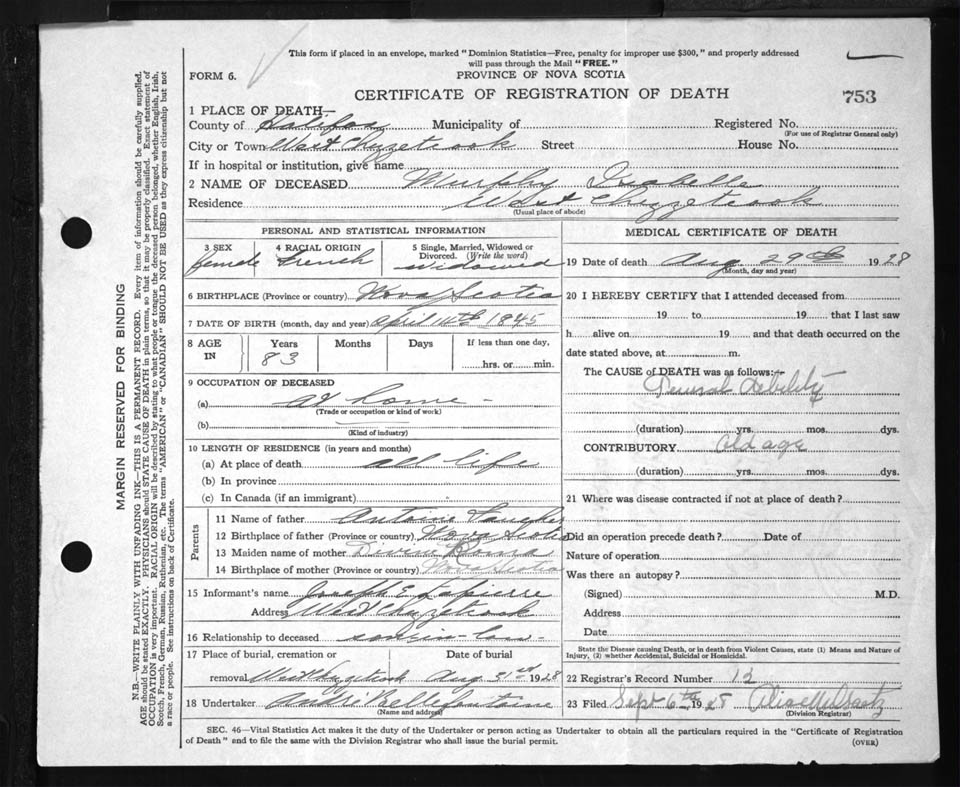 This form if placed in an envelope, marked "Dominion Statistics—Free, penalty for improper use $300," and properly addressed
will pass through the Mail "FREE."
FORM 6.
PROVINCE OF NOVA SCOTIA
CERTIFICATE OF REGISTRATION OF DEATH
753
1 PLACE OF DEATH—
County of Halifax Municipality of Registered No.
(For use of Registrar General only)
City or Town West Chezzetcook Street House No.
If in hospital or institution, give name
2 NAME OF DECEASED Murphy Isabelle
Residence West Chezzetcook
(Usual place of abode)
PERSONAL AND STATISTICAL INFORMATION
3 SEX 4 RACIAL ORIGIN 5 Single, Married, Widowed or Divorced. (Write the word)
female French Widowed
6 BIRTHPLACE (Province or country) Nova Scotia
7 DATE OF BIRTH (month, day and year) April 14th 1845
8 AGE IN Years Months Days If less than one day,
83 hrs. or min.
9 OCCUPATION OF DECEASED
(a) at home
(Trade or occupation or kind of work)
(b)
(Kind of industry)
10 LENGTH OF RESIDENCE (in years and months)
(a) At place of death all life
(b) In province
(c) In Canada (if an immigrant)
Parents
11 Name of father Antoine
12 Birthplace of father (Province or country) Nova Scotia
13 Maiden name of mother Roma
14 Birthplace of mother (Province or country) Nova Scotia
15 Informant's name Joseph E Lapierre
Address West Chezzetcook
16 Relationship to deceased son-in-law
17 Place of burial, cremation or Date of burial
removal West Chezzetcook Aug 31st 1928
18 Undertaker André Bellefontaine
(Name and address)
MEDICAL CERTIFICATE OF DEATH
19 Date of death Aug 29th 1928
(Month, day and year)
20 I HEREBY CERTIFY that I attended deceased from
19 to 19 that I last saw
h alive on 19 and that death occurred on the
date stated above, at m.
The CAUSE OF DEATH was as follows:—
General debility
(duration) yrs. mos. dys.
CONTRIBUTORY Old age
(duration) yrs. mos. dys.
21 Where was disease contracted if not at place of death?
Did an operation precede death? Date of
Nature of operation
Was there an autopsy?
(Signed) M.D.
Address
Date
State the Disease causing Death, or in death from Violent Causes, state (1) Means and Nature of
Injury, (2) whether Accidental, Suicidal or Homicidal.
22 Registrar's Record Number 12
23 Filed Sept 6th 1928
(Division Registrar)
SEC. 46—Vital Statistics Act makes it the duty of the Undertaker or person acting as Undertaker to obtain all the particulars required in the "Certificate of Registration
of Death" and to file the same with the Division Registrar who shall issue the burial permit.
(OVER)
MARGIN RESERVED FOR BINDING
N.B.—WRITE PLAINLY WITH UNFADING INK—THIS IS A PERMANENT RECORD. Every item of information should be carefully supplied.
AGE should be stated EXACTLY. PHYSICIANS should STATE CAUSE OF DEATH in plain terms, so that it may be properly classified. Exact statement of
OCCUPATION is very important. RACIAL ORIGIN will be described by stating to what people or tongue the deceased person belonged, whether English, Irish,
Scotch, French, German, Russian, Ruthenian, etc. The terms "AMERICAN" or "CANADIAN" SHOULD NOT BE USED as they express citizenship but not
a race or people. See instructions on back of Certificate.